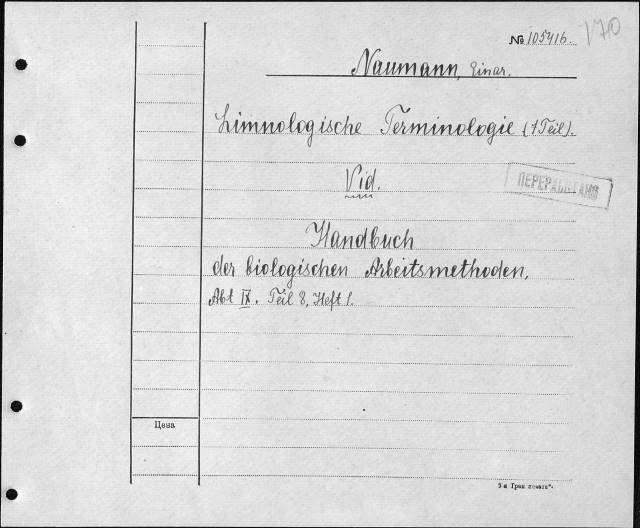 № 105416.
V70
Naumann, Einar.
Limnologische Terminologie (1 Teil).
Vid.
ПЕРЕРАБОТАНО
Handbuch
der biologischen Arbeitsmethoden,
Abt IX. Teil 8, Heft 1.
Цена